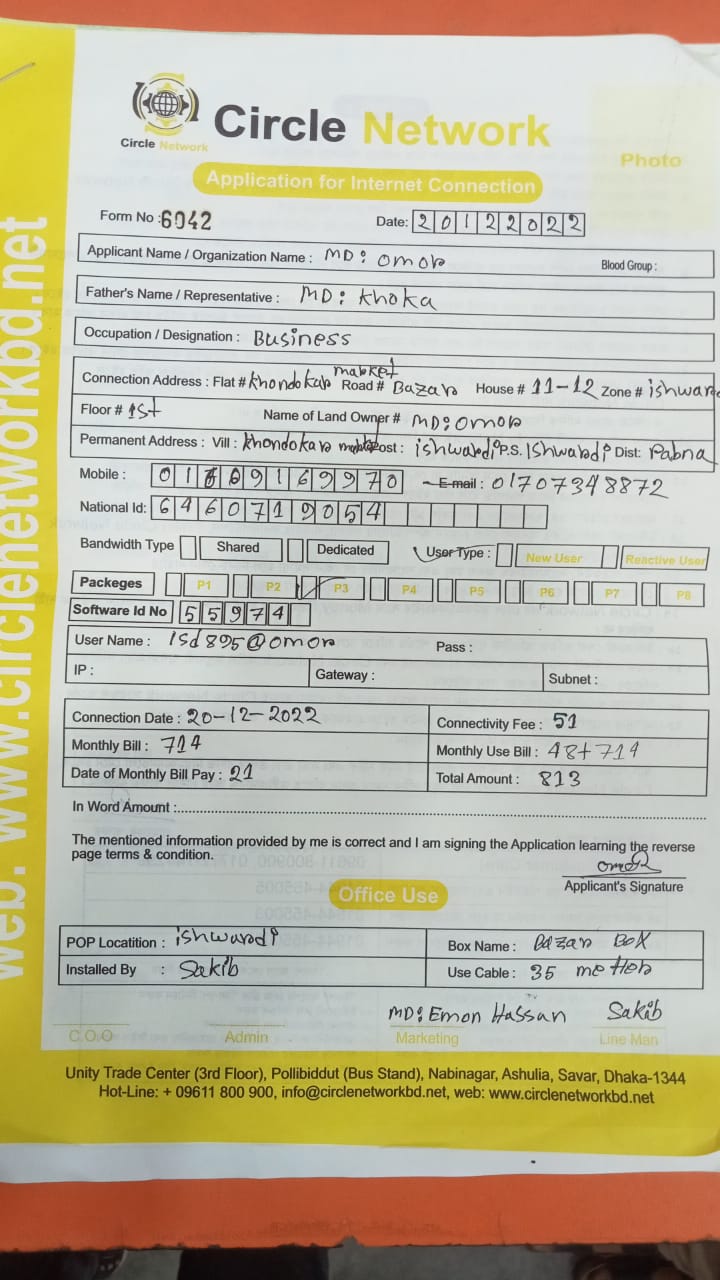 Circle Network
Circle Network
Photo
Application for Internet Connection
Form No :6042 Date: 20122022
Applicant Name / Organization Name : MD: omor Blood Group :
Father's Name / Representative : MD: Khoka
Occupation / Designation : Business
Connection Address : Flat # Khondokar market Road # Bazar House # 11-12 Zone # ishward
Floor # 1St Name of Land Owner # MD:omor
Permanent Address : Vill : Khondokar Post : ishwardi P.S. IShwardi Dist: Pabna
Mobile : E-mail : 01707348872
National Id: 6460719054
Bandwidth Type Shared Dedicated User Type : New User Reactive User
Packeges P1 P2 P3 P4 P5 P6 P7 P8
Software Id No 55974
User Name : ISd895@omor Pass :
IP : Gateway : Subnet :
Connection Date : 20-12-2022 Connectivity Fee : 51
Monthly Bill : 714 Monthly Use Bill : 48+714
Date of Monthly Bill Pay : 21 Total Amount : 813
In Word Amount :
The mentioned information provided by me is correct and I am signing the Application learning the reverse
page terms & condition.
omor
Applicant's Signature
Office Use
POP Locatition : ishwardi Box Name : Bazar BOX
Installed By : Sakib Use Cable : 35 metter
MD: Emon Hassan Sakib
C.O.O Admin Marketing Line Man
Unity Trade Center (3rd Floor), Pollibiddut (Bus Stand), Nabinagar, Ashulia, Savar, Dhaka-1344
Hot-Line: + 09611 800 900, info@circlenetworkbd.net, web: www.circlenetworkbd.net
web: www.circlenetworkbd.net